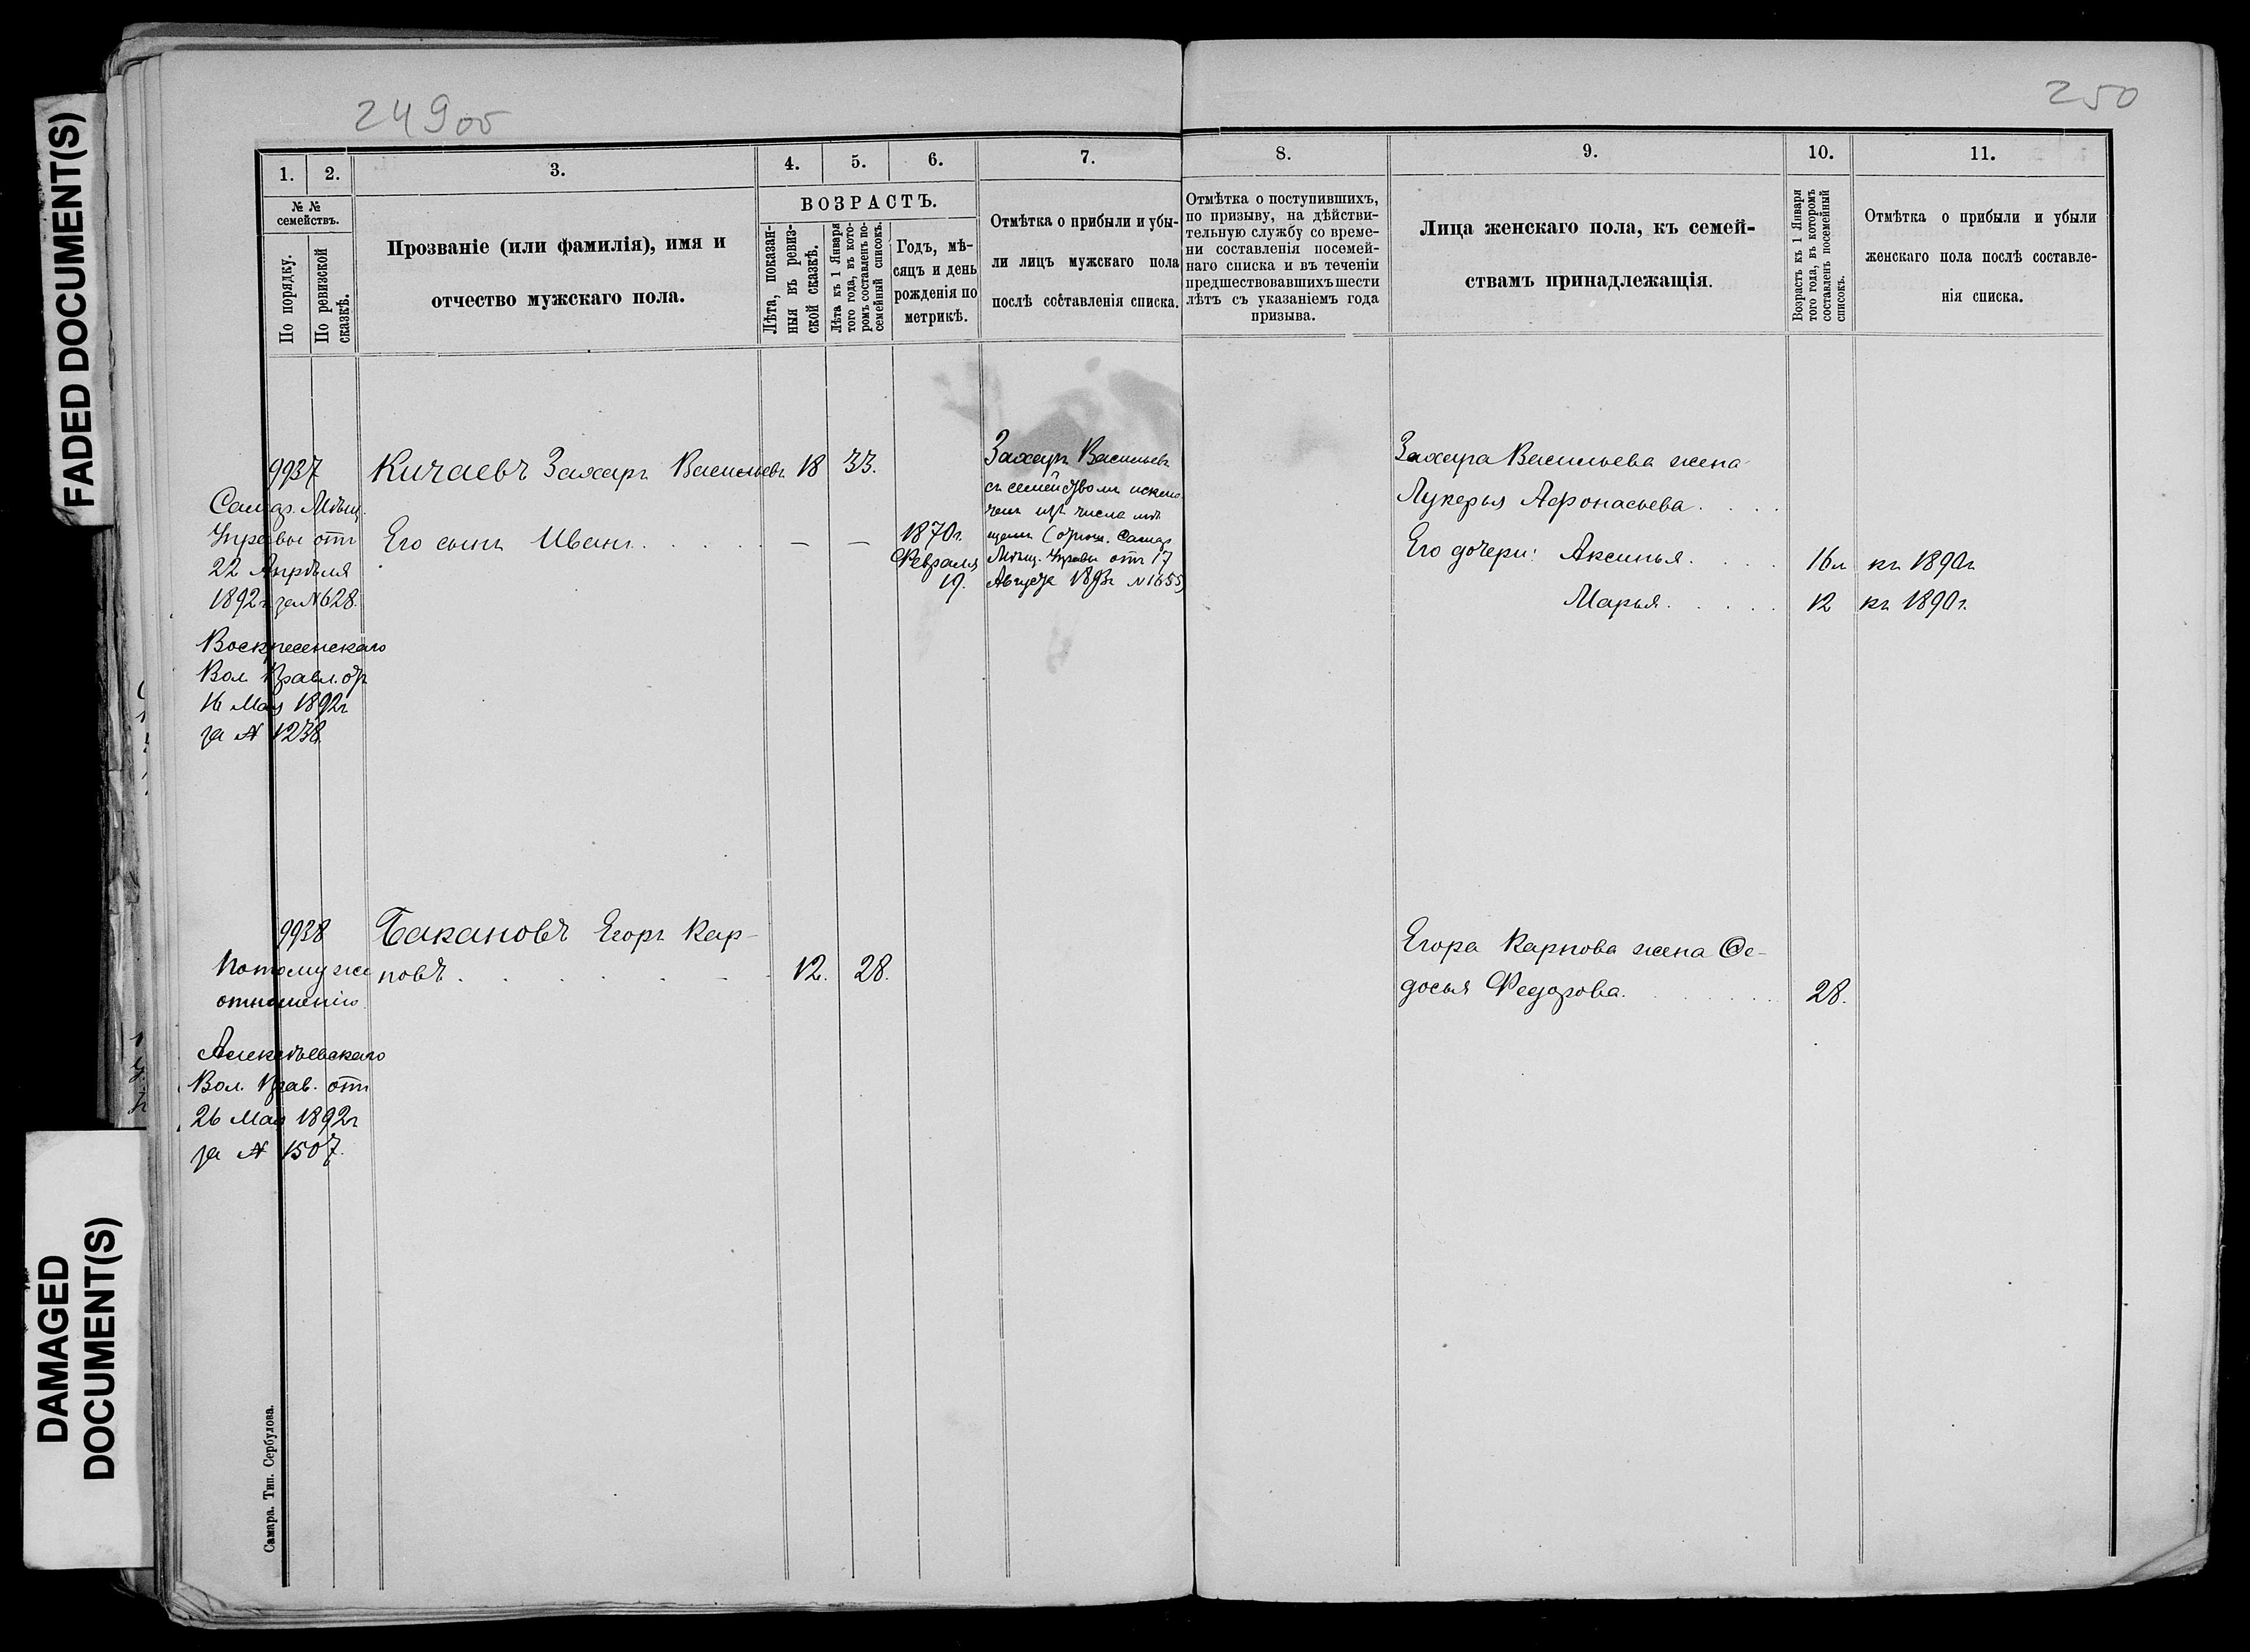 FADED DOCUMENT(S)
DAMAGED
DOCUMENT(S)
249об
250
1.
2.
3.
4.
5.
6.
7.
8.
9.
10.
11.
№ №
семействъ.
По порядку.
По ревизской
сказкѣ.
Прозваніе (или фамилія), имя и
отчество мужскаго пола.
ВОЗРАСТЪ.
Лѣта, показан-
ныя въ ревиз-
ской сказкѣ.
Лѣта къ 1 Января
того года, въ кото-
ромъ составленъ по-
семейный списокъ.
Годъ, мѣ-
сяцъ и день
рожденія по
метрикѣ.
Отмѣтка о прибыли и убы-
ли лицъ мужскаго пола
послѣ составленія списка.
Отмѣтка о поступившихъ,
по призыву, на дѣйстви-
тельную службу со време-
ни составленія посемей-
наго списка и въ теченіи
предшествовавшихъ шести
лѣтъ съ указаніемъ года
призыва.
Лица женскаго пола, къ семей-
ствамъ принадлежащія.
Возрастъ къ 1 Января
того года, въ которомъ
составленъ посемейный
списокъ.
Отмѣтка о прибыли и убыли
женскаго пола послѣ составле-
нія списка.
9937
Самар. Мѣщ.
Управы отъ
22 Апрѣля
1892г за №628.
Воскресенскаго
Вол. Правл. от
16 Мая 1892г
за № 1238
Кичаевъ Захаръ Васильевъ 18 33.
Его сынъ Иванъ . . . . . — —
1870г.
Февраля
19.
Захаръ Васильевъ
съ семействомъ исклю
ченъ изъ числа мѣ
щанъ (отнош. Самар
Мѣщ. Управы отъ 17
Августа 1893г №1655)
Захара Васильева жена
Лукерья Афонасьева. . . .
Его дочери: Аксинья. . . . 16л къ 1890г
Марья. . . . . 12 къ 1890г.
9938
По тому же
отношенію.
Алексѣевскаго
Вол. Прав. отъ
26 Мая 1892г
за № 1507.
Бакановъ Егоръ Кар-
повъ . . . . . . 12. 28.
Егора Карпова жена Ѳе-
досья Федорова. . . . . . 28.
Самара. Тип. Сербулова.